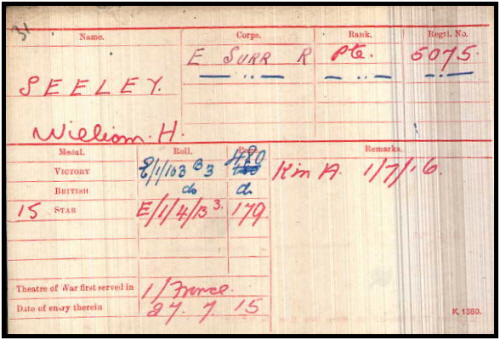 31
Name. Corps. Rank. Regtl. No.
E SURR R Pte. 5075.
SEELEY.
William. H.
Medal. Roll. Remarks.
VICTORY E/1/103 B3 480 Kin A. 1/7/16.
BRITISH do do
15 STAR E/1/4/B3. 179.
Theatre of War first served in 1/France.
Date of entry therein 27. 7. 15
K. 1380.